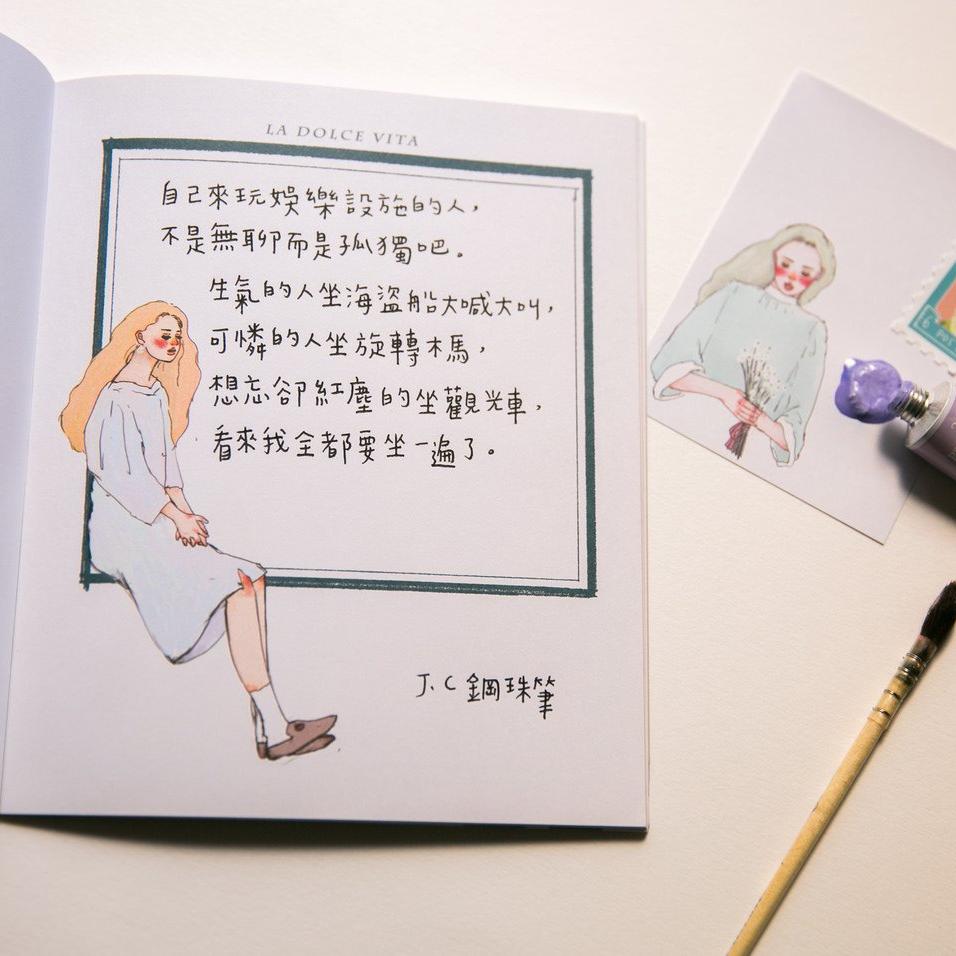 LA DOLCE VITA
自己來玩娛樂設施的人，
不是無聊而是孤獨吧。
生氣的人坐海盜船大喊大叫，
可憐的人坐旋轉木馬，
想忘卻紅塵的坐觀光車，
看來我全都要坐一遍了。
J.C 鋼珠筆